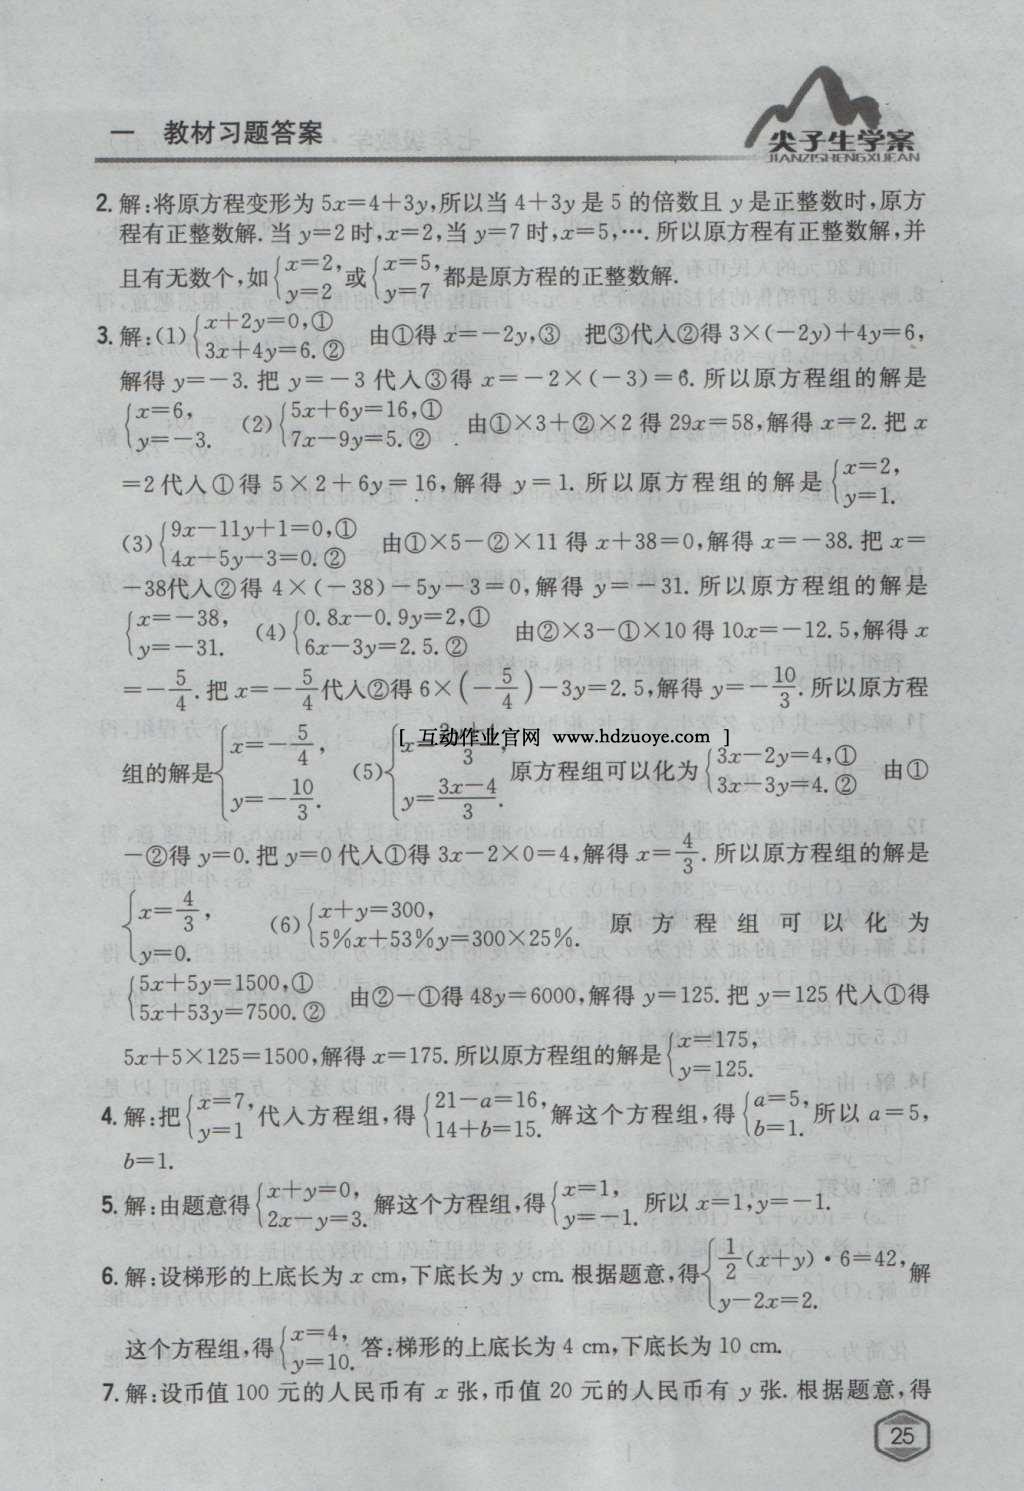 一 教材习题答案
尖子生学案
JIANZISHENGXUEAN
2. 解:将原方程变形为 5x=4+3y,所以当 4+3y 是 5 的倍数且 y 是正整数时,原方
程有正整数解. 当 y=2 时,x=2,当 y=7 时,x=5,…. 所以原方程有正整数解,并
且有无数个,如{x=2, y=2 或{x=5, y=7 都是原方程的正整数解.
3. 解:(1){x+2y=0,① 3x+4y=6.② 由①得 x=-2y,③ 把③代入②得 3×(-2y)+4y=6,
解得 y=-3. 把 y=-3 代入③得 x=-2×(-3)=6. 所以原方程组的解是
{x=6, y=-3. (2){5x+6y=16,① 7x-9y=5.② 由①×3+②×2 得 29x=58,解得 x=2. 把 x
=2代入①得 5×2+6y=16,解得 y=1. 所以原方程组的解是{x=2, y=1.
(3){9x-11y+1=0,① 4x-5y-3=0.② 由①×5-②×11 得 x+38=0,解得 x=-38. 把 x=
-38代入②得 4×(-38)-5y-3=0,解得 y=-31. 所以原方程组的解是
{x=-38, y=-31. (4){0.8x-0.9y=2,① 6x-3y=2.5.② 由②×3-①×10 得 10x=-12.5,解得 x
=-5/4. 把 x=-5/4代入②得 6×(-5/4)-3y=2.5,解得 y=-10/3. 所以原方程
组的解是{x=-5/4, y=-10/3. (5){x= /3 y=(3x-4)/3. 原方程组可以化为{3x-2y=4,① 3x-3y=4.② 由①
[ 互动作业官网 www.hdzuoye.com ]
-②得 y=0. 把 y=0 代入①得 3x-2×0=4,解得 x=4/3. 所以原方程组的解是
{x=4/3, y=0. (6){x+y=300, 5%x+53%y=300×25%. 原方程组可以化为
{5x+5y=1500,① 5x+53y=7500.② 由②-①得 48y=6000,解得 y=125. 把 y=125 代入①得
5x+5×125=1500,解得 x=175. 所以原方程组的解是{x=175, y=125.
4. 解:把{x=7, y=1 代入方程组,得{21-a=16, 14+b=15. 解这个方程组,得{a=5, b=1. 所以 a=5,
b=1.
5. 解:由题意得{x+y=0, 2x-y=3. 解这个方程组,得{x=1, y=-1. 所以 x=1,y=-1.
6. 解:设梯形的上底长为 x cm,下底长为 y cm. 根据题意,得{1/2(x+y)·6=42, y-2x=2. 解
这个方程组,得{x=4, y=10. 答:梯形的上底长为 4 cm,下底长为 10 cm.
7. 解:设币值 100 元的人民币有 x 张,币值 20 元的人民币有 y 张. 根据题意,得
25